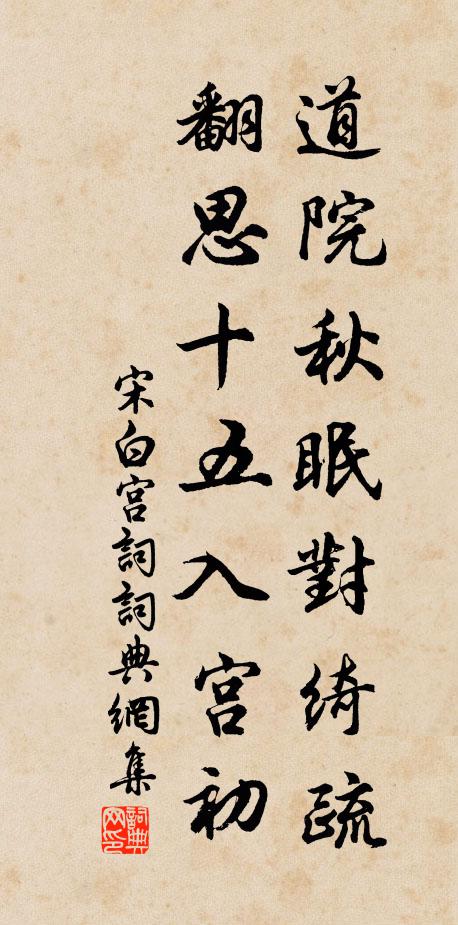 道院秋眠對綺疏
翻思十五入宮初
宋白宮詞詞典網集
詞典網印